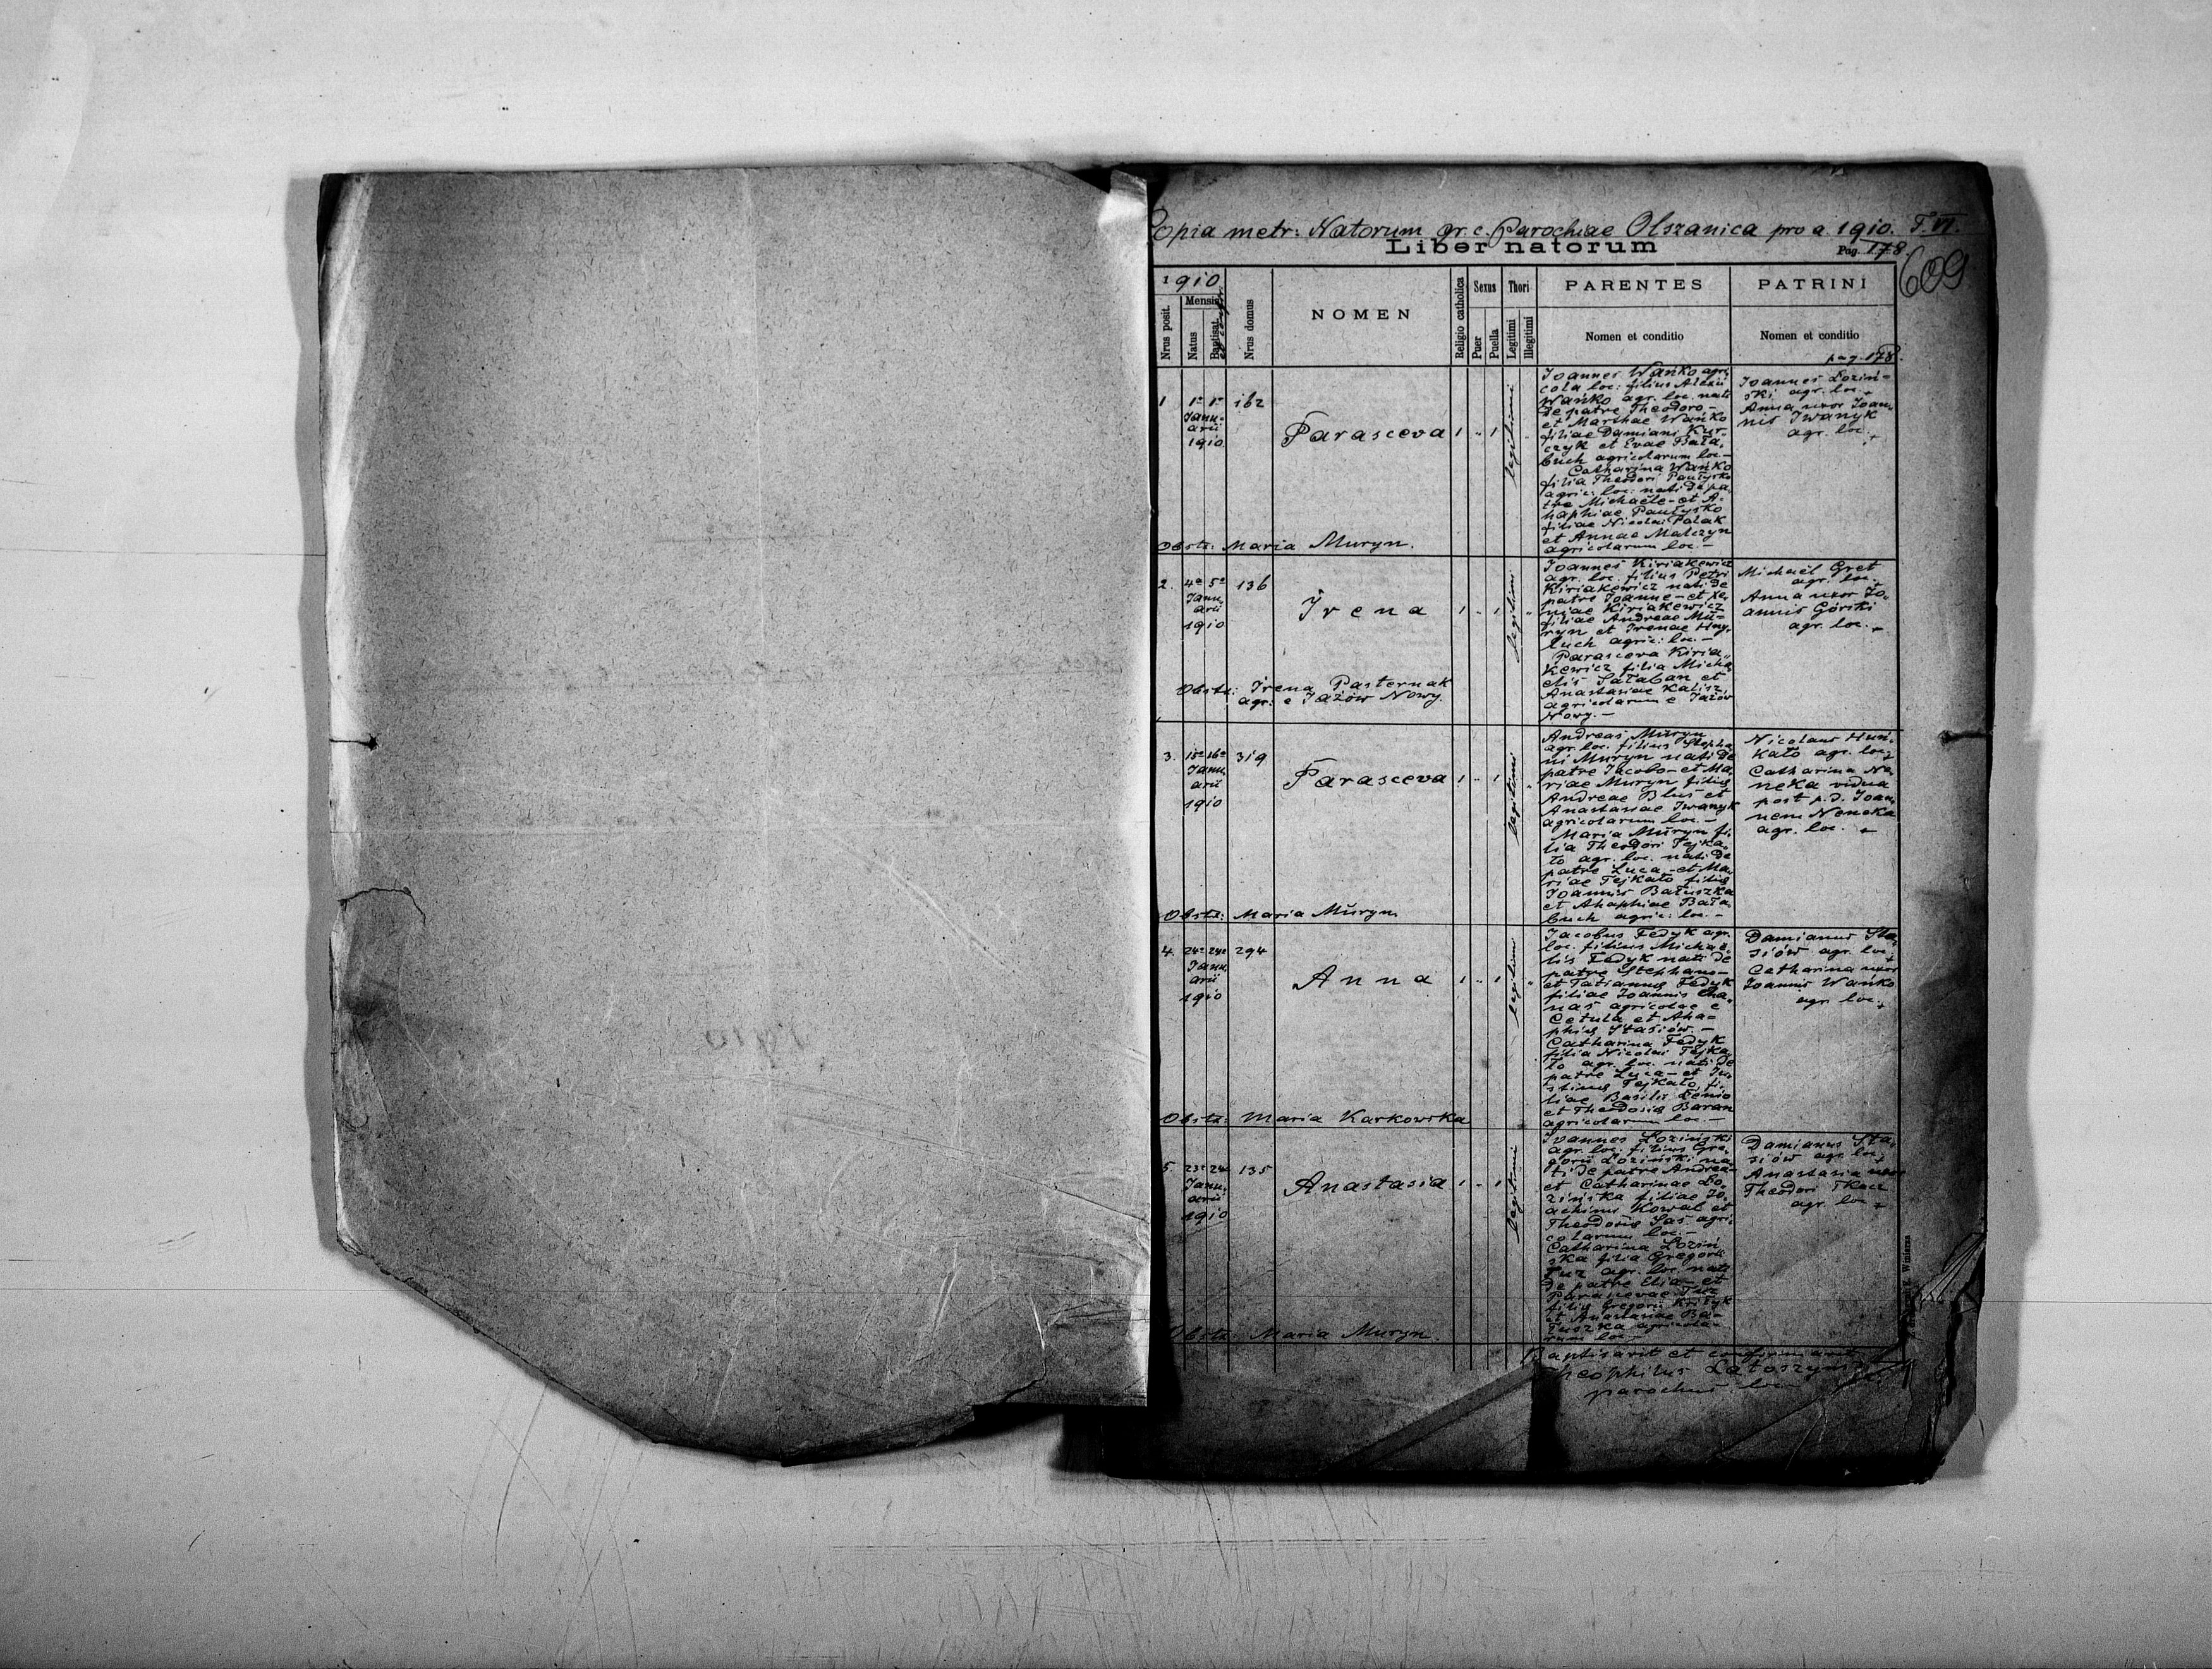 Copia metr: Natorum gr. c. Parochiae Olszanica pro a 1910. T. VI.
Liber natorum
Pag. 178.
609
1910
Mensis
Nrus posit.
Natus
Baptisat.
Nrus domus
NOMEN
Religio catholica
Sexus
Puer
Puella
Thori
Legitimi
Illegitimi
PARENTES
Nomen et conditio
PATRINI
Nomen et conditio
pag. 178.
1
1a 1a
Janu-
arii
1910
162
Parasceva
1 " 1
legitimi
Joannes Wańko agri
cola loc: filius Alexii
Wańko agr. loc. nati
de patre Theodoro -
et Marthae Wańko
filiae Damiani Kur-
czyk et Evae Bała-
buch agricolarum loc -
Catharina Wańko
filia Theodori Paułysko
agric: loc: nati de pa-
tre Michaele - et A-
haphiae Paułysko
filiae Nicolai Palak
et Annae Malczyn
agricolarum loc. -
Joannes Łoziń-
ski agr. loc. +
Anna uxor Joan-
nis Iwanyk
agr. loc. +
Obstr: Maria Muryn.
2.
4a 5a
Janu,
arii
1910
136
Irena
1 " 1 "
legitimi
Joannes Kiriakewicz
agr. loc. filius Petri
Kiriakewicz nati de
patre Joanne - et Xe-
niae Kiriakewicz
filiae Andreae Mu-
ryn et Irenae Hny-
luch agric: loc. -
Parasceva Kiria-
kewicz filia Micha-
elis Sałaban et
Anastasiae Kalisz
agricolarum e Jażów
Nowy. -
Michaël Gret
agr. loc. +
Anna uxor Jo-
annis Górski
agr. loc. +
Obstr: Irena Pasternak
agr: e Jażów Nowy.
3.
15a 16a
Janu,
arii
1910
319
Parasceva
1 " 1 "
legitimi
Andreas Muryn
agr. loc. filius Stepha
ni Muryn nati de
patre Jacobo - et Ma-
riae Muryn filiae
Andreae Bluś et
Anastasiae Iwanyk
agricolarum loc. -
Maria Muryn fi-
lia Theodori Fejka-
ło agr. loc. nati de
patre Luca - et Ma-
riae Fejkało filiae
Joannis Bałuszka
et Ahaphiae Bała-
buch agric: loc. -
Nicolaus Hun-
kało agr. loc. +
Catharina Ne-
neka vidua
post p. d. Joan-
nem Neneka
agr. loc. +
Obstr: Maria Muryn
4.
24a 24a
Janu,
arii
1910
294
Anna
1 " 1 "
legitimi
Jacobus Fedyk agr.
loc. filius Michaë-
lis Fedyk nati de
patre Stephano -
et Tatiannae Fedyk
filiae Joannis
agricolae e
Cetula et Aha-
phiae Stasiów. -
Catharina Fedyk
filia Nicolai Fejka-
ło agr. loc. nati de
patre Luca - et Ju-
stinae Fejkało fi-
liae Basilii
et Theodosiae Baran
agricolarum loc. -
Damianus Sta-
siów agr. loc. +
Catharina uxor
Joannis Wańko
agr. loc. +
Obstr: Maria Karkowska
5.
23a 24a
Janu,
arii
1910
135
Anastasia
1 " 1
legitimi
Joannes Łoziński
agr. loc; filius Gre-
gorii Łoziński na-
ti de patre Andrea -
et Catharinae Ło-
zińska filiae Jo-
achimi Kowal et
Theodosiae Sas agri-
colarum loc: -
Catharina Łoziń
ska filia Gregorii
agr. loc. nati
de patre Elia - et
Parascevae
filiae Gregorii
et Anastasiae Ba-
łuszka agricola-
rum loc -
Damianus Sta-
siów agr. loc. +
Anastasia uxor
Theodori Tkacz
agr. loc. +
Obstr: Maria Muryn.
Baptisavit et confirmavit
Theophilus Latoszyński
parochus loc